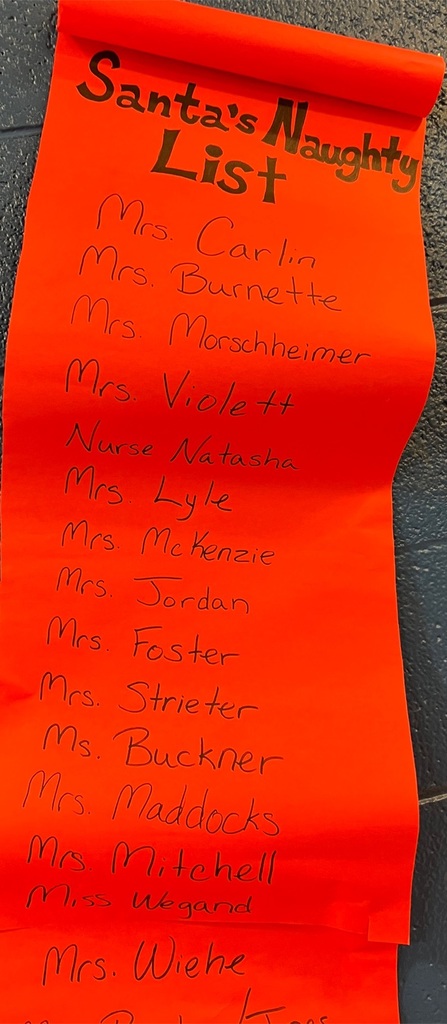 Santa's Naughty
List
Mrs. Carlin
Mrs. Burnette
Mrs. Morschheimer
Mrs. Violett
Nurse Natasha
Mrs. Lyle
Mrs. McKenzie
Mrs. Jordan
Mrs. Foster
Mrs. Strieter
Ms. Buckner
Mrs. Maddocks
Mrs. Mitchell
Miss Wegand
Mrs. Wiehe